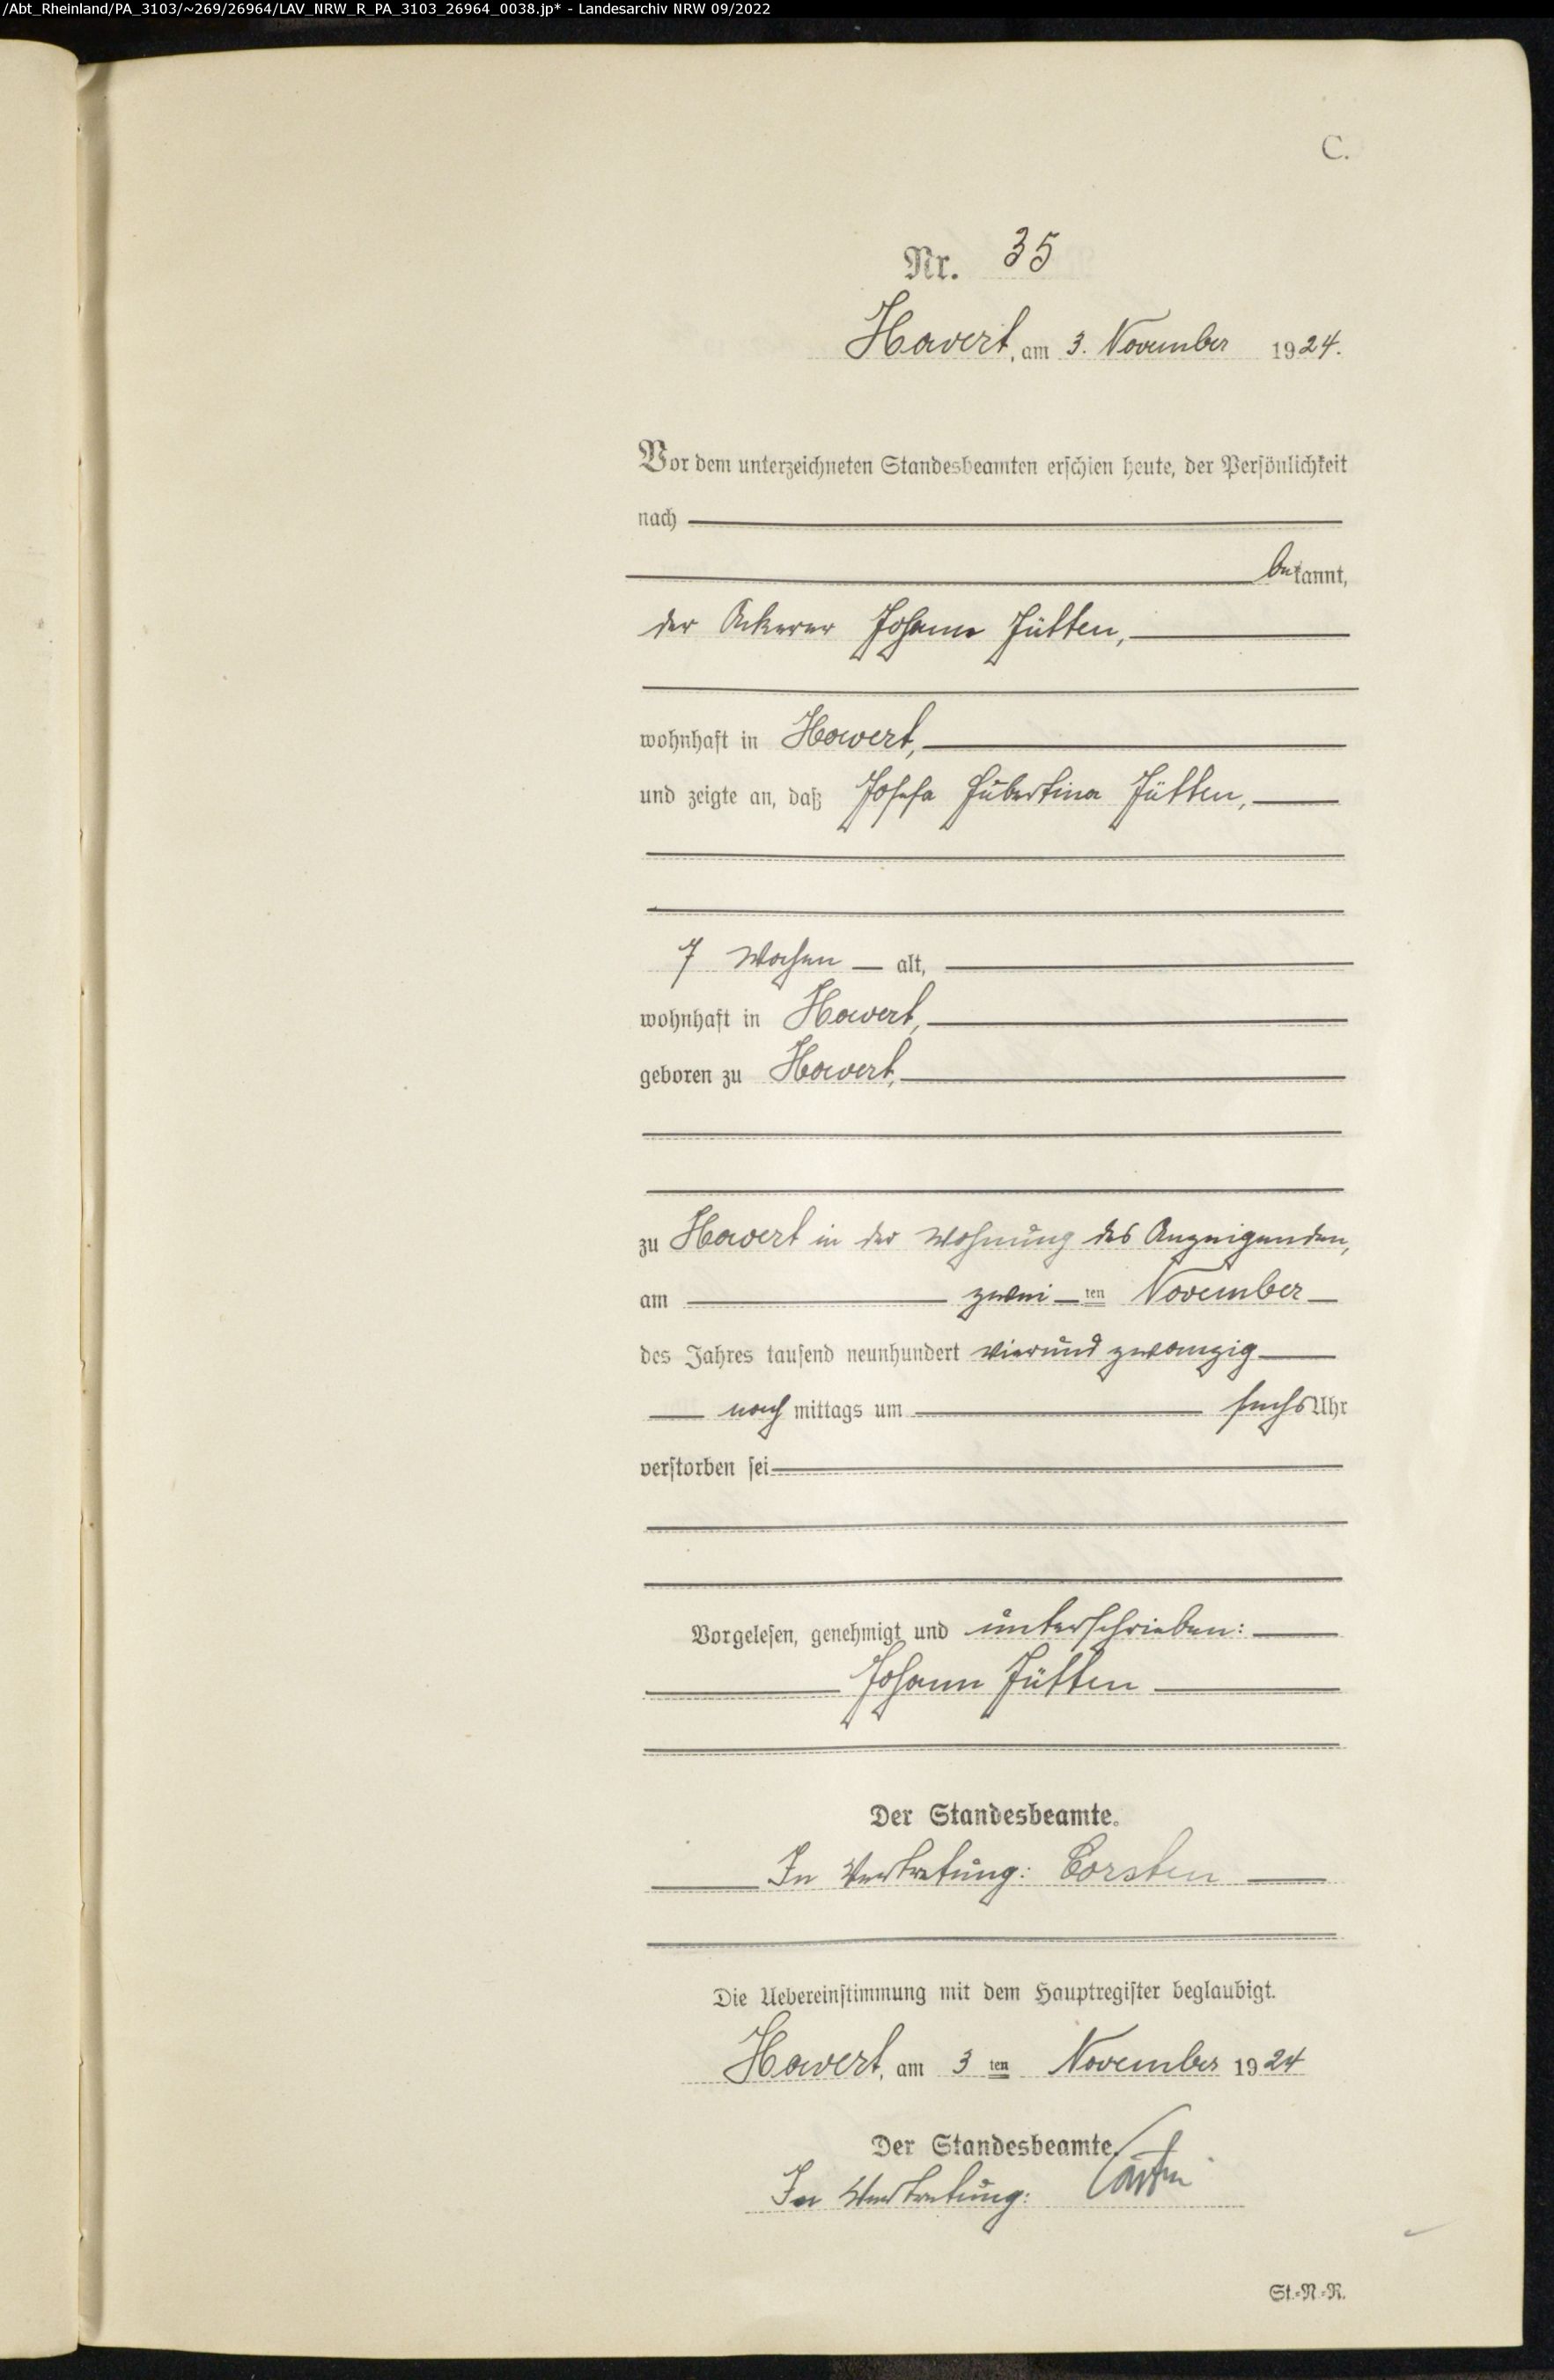 /Abt_Rheinland/PA_3103/~269/26964/LAV_NRW_R_PA_3103_26964_0038.jp* - Landesarchiv NRW 09/2022
C.
Nr. 35
Havert, am 3. November 1924.
Vor dem unterzeichneten Standesbeamten erschien heute, der Persönlichkeit
nach
bekannt,
der Ackerer Johann Jütten,
wohnhaft in Havert,
und zeigte an, daß Josefa Hubertina Jütten,
7 Wochen alt,
wohnhaft in Havert,
geboren zu Havert,
zu Havert in der Wohnung des Anzeigenden,
am zweiten November
des Jahres tausend neunhundert vierund zwanzig
nach mittags um sechs Uhr
verstorben sei
Vorgelesen, genehmigt und unterschrieben:
Johann Jütten
Der Standesbeamte.
In Vertretung: Corsten
Die Uebereinstimmung mit dem Hauptregister beglaubigt.
Havert, am 3 ten November 1924
Der Standesbeamte.
In Vertretung: Corsten
St.-N.-R.